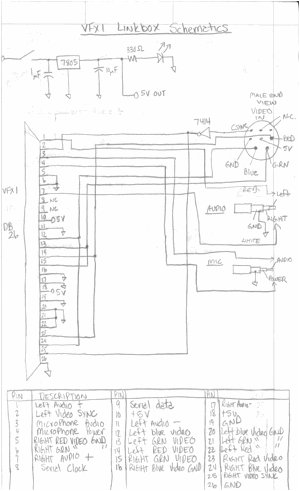 VFX1 Linkbox Schematics
330Ω
7805
1µF
5V OUT
MALE END
VIEW
VIDEO
IN
7414
COMP.
N.C.
RED
5V
GND
Blue
GRN
VFX1
DB
26
1
2
3
4
5
6
7
8 NC
9 NC
10 5V
11
12
13
14
15
16
17
18 5V
19
20
21
22
23
24
25
26
Left
AUDIO
RIGHT
GND
WHITE
MIC
AUDIO
POWER
PIN DESCRIPTION
1 Left Audio +
2 Left Video SYNC
3 Microphone Audio
4 Microphone Power
5 RIGHT RED VIDEO GND
6 RIGHT GRN " "
7 RIGHT AUDIO +
8 Serial Clock
PIN
9 Serial data
10 +5V
11 Left Audio -
12 Left blue video
13 Left GRN VIDEO
14 Left RED VIDEO
15 RIGHT GRN VIDEO
16 Right Blue Video GND
PIN
17 Right Audio -
18 +5v
19 GND
20 Left blue Video GND
21 Left GRN " "
22 Left Red " "
23 Right Red Video
24 Right Blue Video
25 Right Video SYNC
26 GND